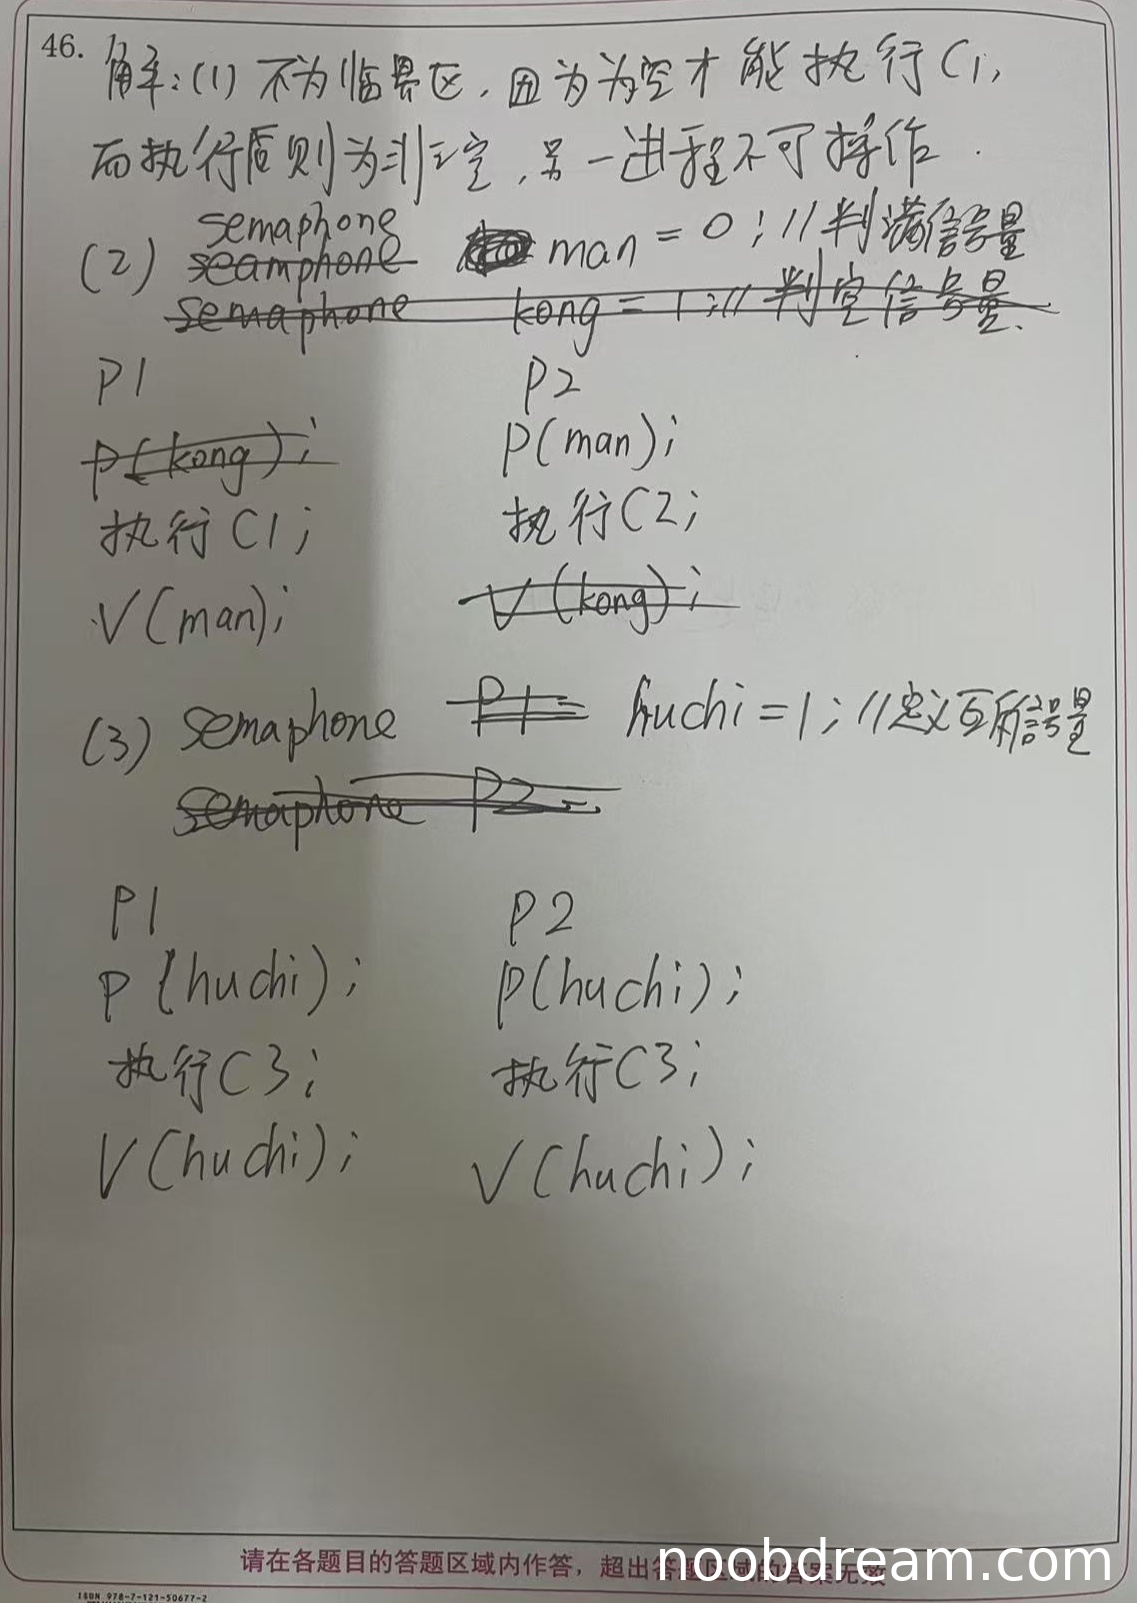 46. 解:(1)不为临界区,因为为空才能执行C1,
而执行后则为非空,另一进程不可操作.
semaphone
(2) seamphone man = 0; //判满信号量
semaphone kong = 1; // 判空信号量.
P1 P2
P(kong); P(man);
执行C1; 执行C2;
V(man); V(kong);
(3) semaphone P1= huchi = 1; //定义互斥信号量
semaphone P2=
P1 P2
P(huchi); P(huchi);
执行C3; 执行C3;
V(huchi); V(huchi);
请在各题目的答题区域内作答，超出答题区域的答案无效
noobdream.com
ISBN 978-7-121-50677-2